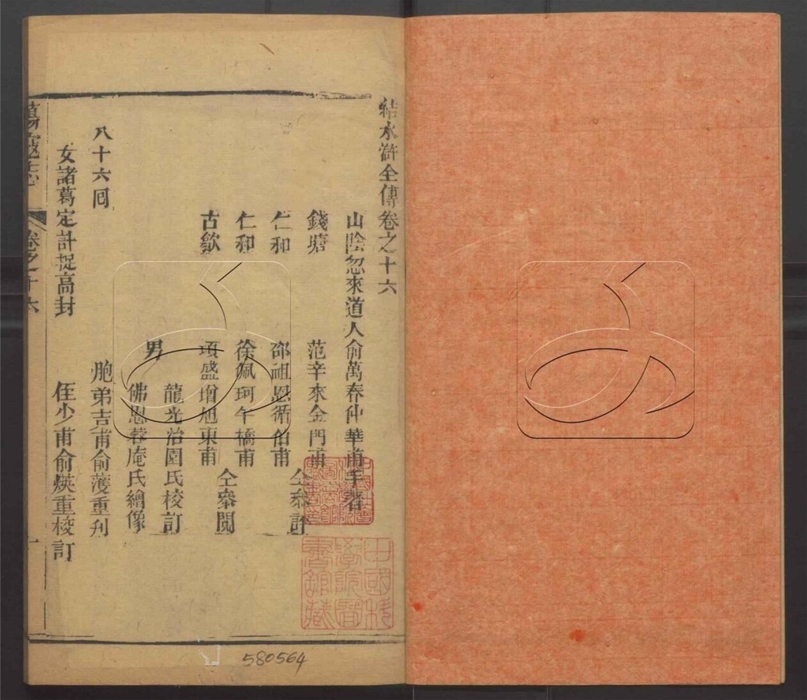 結水滸全傳卷之十六
山陰忽來道人俞萬春仲華甫手著
錢塘 范辛來金門甫
仁和 邵祖恩循伯甫 仝叅訂
仁和 徐佩珂午橋甫
古歙 項盛增旭東甫 仝叅閱
男 龍光治園氏校訂
佛恩 庵氏繪像
胞弟吉甫俞𤅀重刋
八十六囘
侄少甫俞煐重校訂
女諸葛定計捉高封
蕩寇志 卷之十六 一
中國科學院圖書館藏
580564